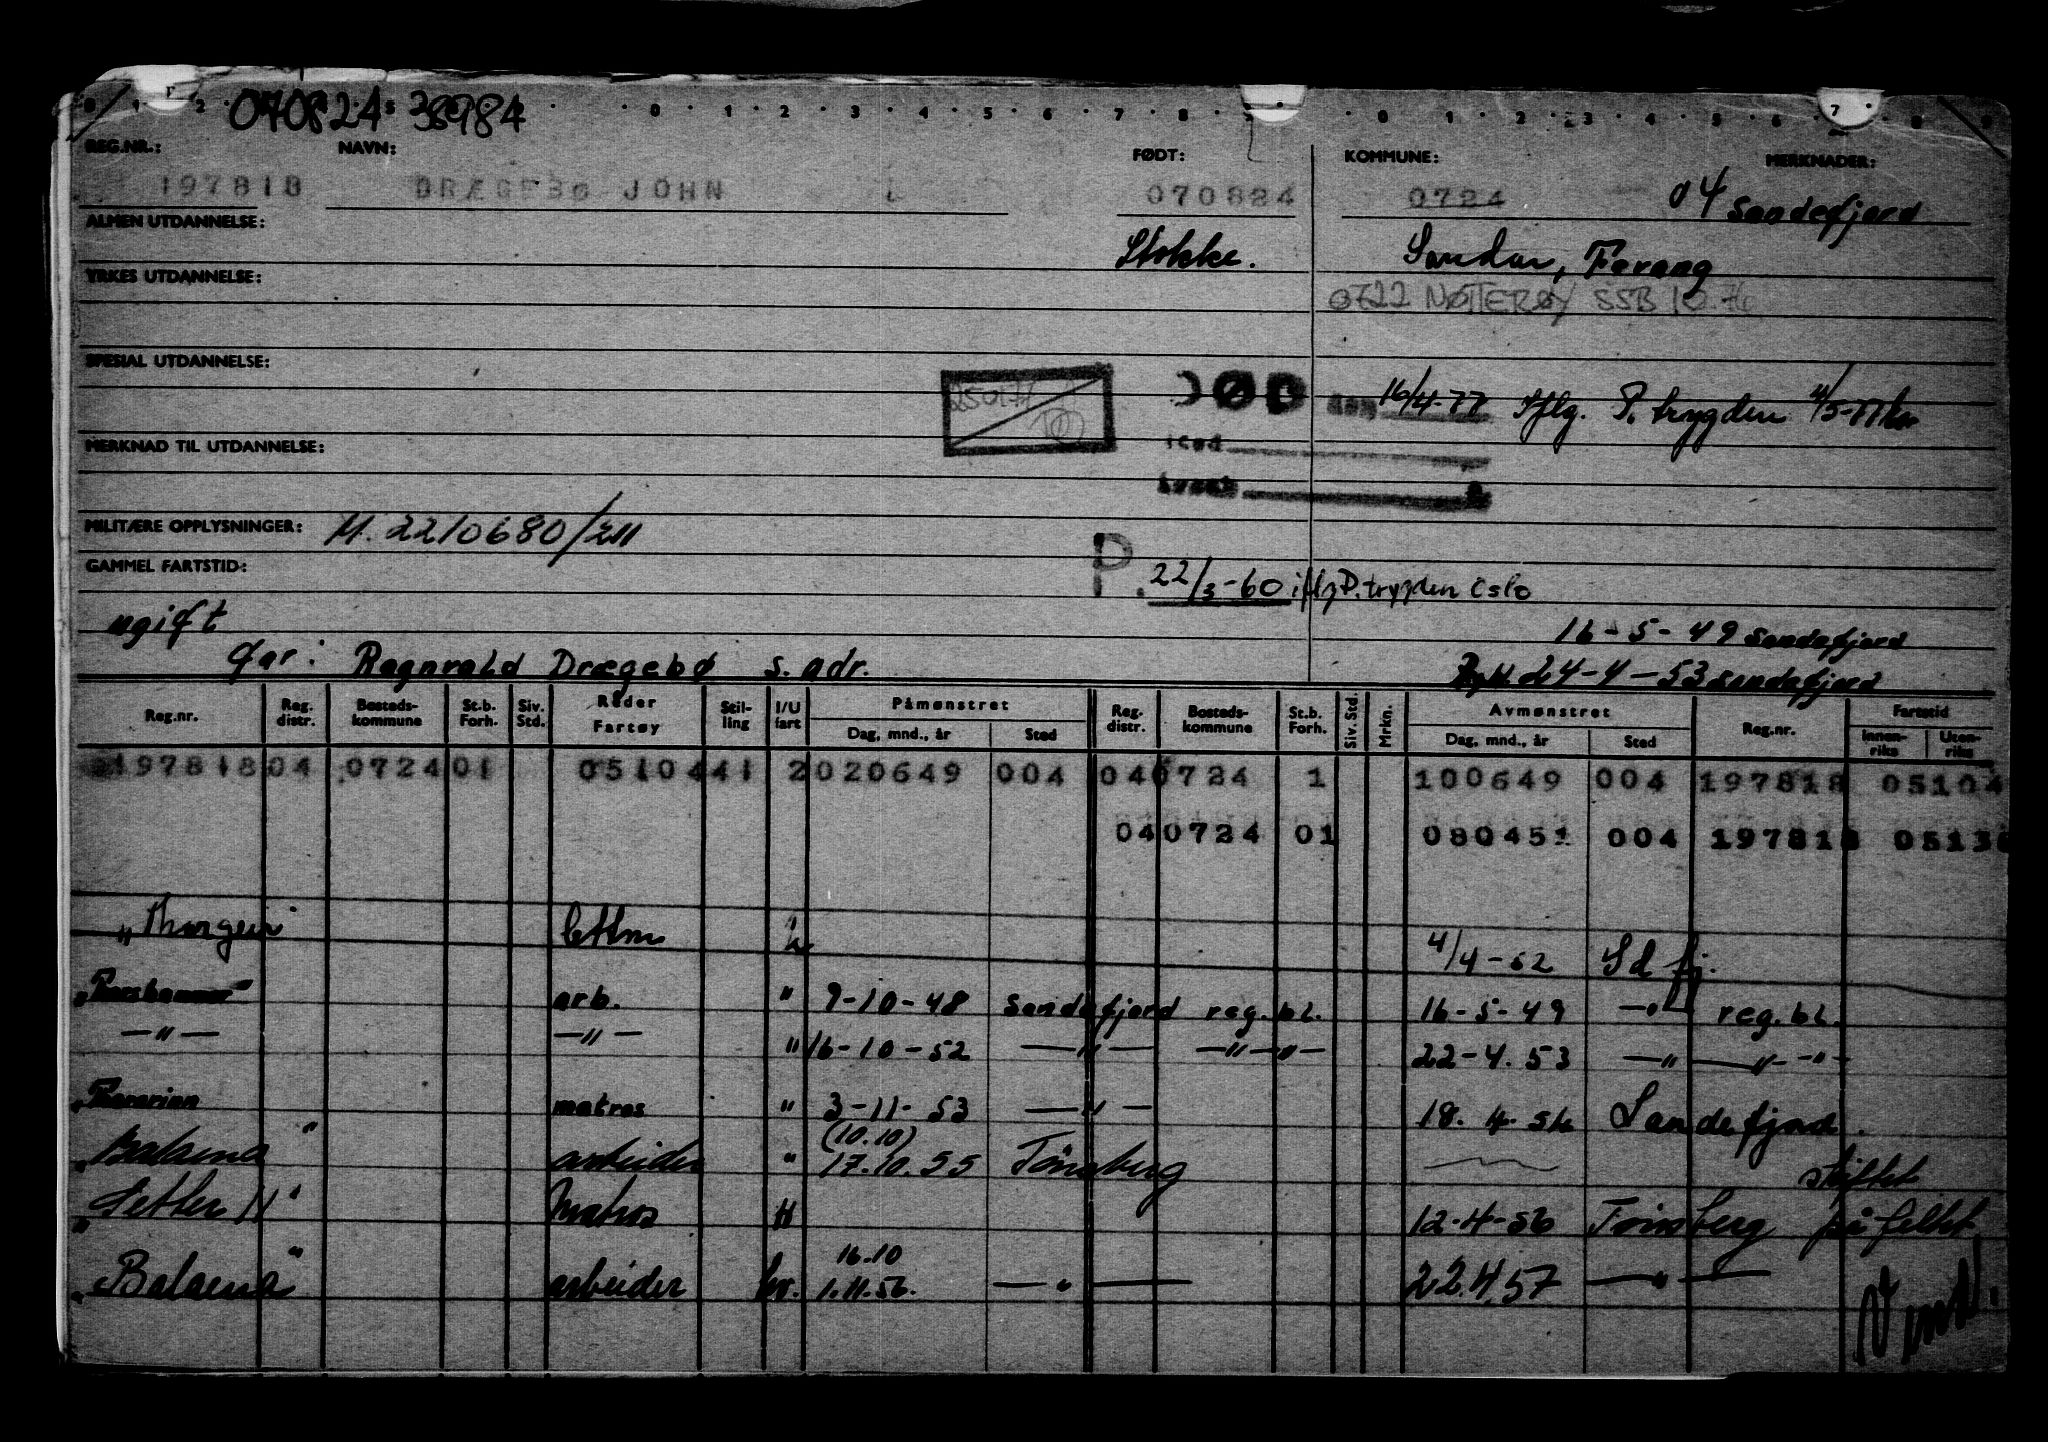 070824 38984
REG.NR.: NAVN: FØDT: KOMMUNE: MERKNADER:
197818 DRÆGEBØ JOHN 070824 0724 04 Sandefjord
ALMEN UTDANNELSE:
Stokke. Sandar, Farang
YRKES UTDANNELSE:
0722 NØTTERØY SSB 10.76
SPESIAL UTDANNELSE:
DØD 16/4-77 Iflg. P. trygden 4/5-77
MERKNAD TIL UTDANNELSE:
MILITÆRE OPPLYSNINGER: M. 2210680/
GAMMEL FARTSTID:
P. 22/3-60 iflg P. trygden Oslo
ugift 16-5-49 Sandefjord
Far: Ragnvald Drægebø s. adr. 24-4-53 Sandefjord
Reg.nr. Reg. distr. Bosteds-kommune St.b. Forh. Siv. Std. Reder Fartøy Stil-ling I/U fart Påmønstret Dag, mnd., år Sted Reg. distr. Bosteds-kommune St.b. Forh. Siv. Std. Mrkn. Avmønstret Dag, mnd., år Sted Reg.nr. Fartstid Innen-riks Uten-riks
197818 04 0724 01 05104 41 2 020649 004 04 0724 1 100649 004 197818 05104
04 0724 01 080451 004 197818 0513
"Thorgeir" lettm 4/4-52 Sdfj.
"Thorshammer" arb. " 9-10-48 Sandefjord reg. bl. 16-5-49 —"— reg. bl.
—"— —"— " 16-10-52 —"— —"—"— 22-4.53 —"— —"—"—
"Thorarinn matros " 3-11-53 —"— 18.4.54 Sandefjord.
(10.10)
"Balaena" arbeider " 17.10.55 Tönsberg skiftet
"Setter II" Matros 12-4-56 Tönsberg på feltet
16.10
"Balaena" arbeider hv. 1.11.56. —"— 22.4.57 —"—